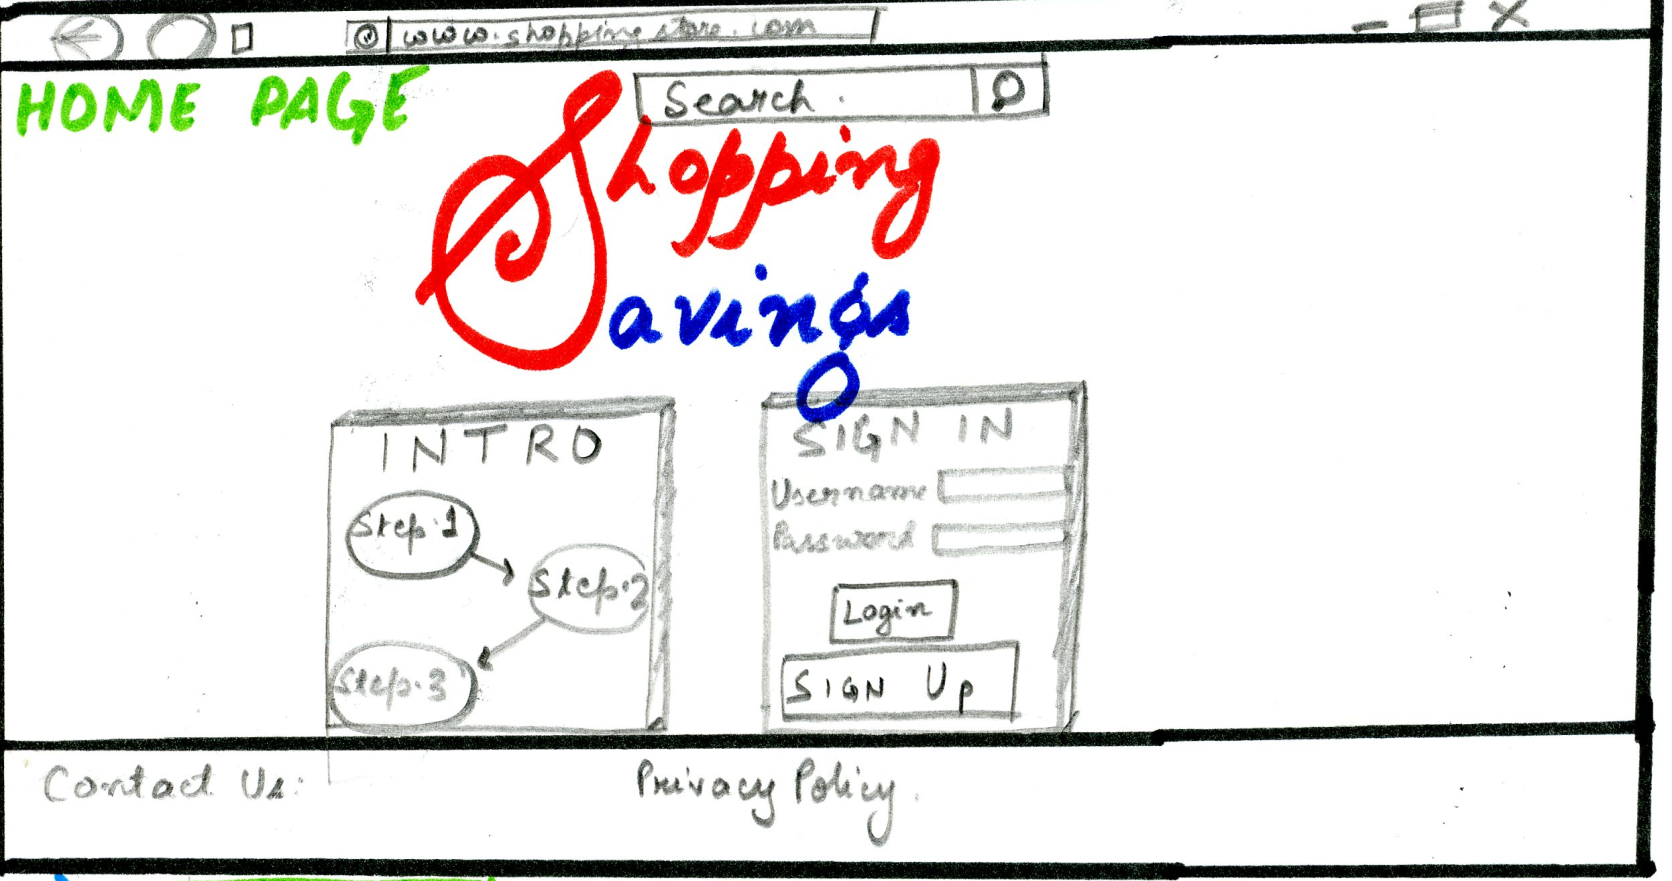 www.shoppingstore.com
HOME PAGE
Search.
Shopping
Savings
INTRO
Step.1
Step.2
Step.3
SIGN IN
Username
Password
Login
SIGN UP
Contact Us:
Privacy Policy.